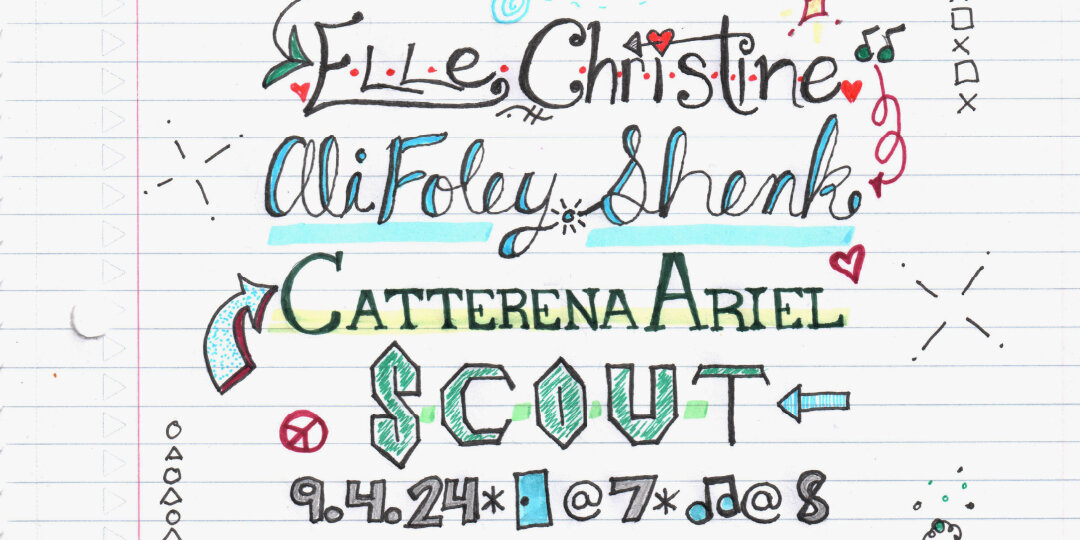 Elle Christine
Ali Foley Shenk
CATTERENA ARIEL
SCOUT
9.4.24* @ 7* @ 8